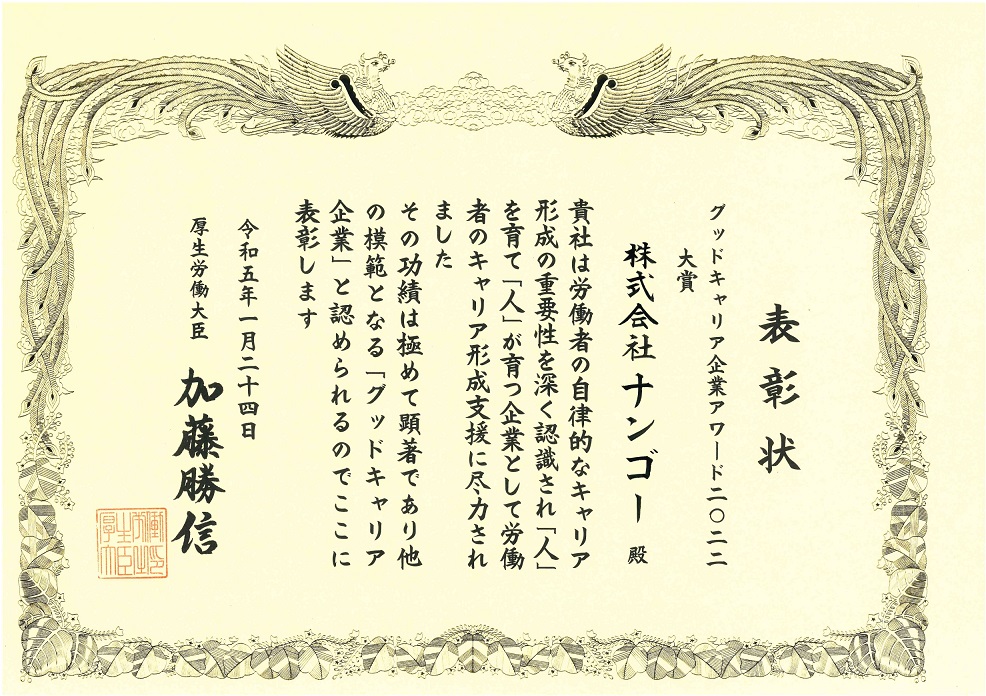 表彰状
グッドキャリア企業アワード二〇二二
大賞
株式会社ナンゴー 殿
貴社は労働者の自律的なキャリア
形成の重要性を深く認識され「人」
を育て「人」が育つ企業として労働
者のキャリア形成支援に尽力され
ました
その功績は極めて顕著であり他
の模範となる「グッドキャリア
企業」と認められるのでここに
表彰します
令和五年一月二十四日
厚生労働大臣 加藤勝信